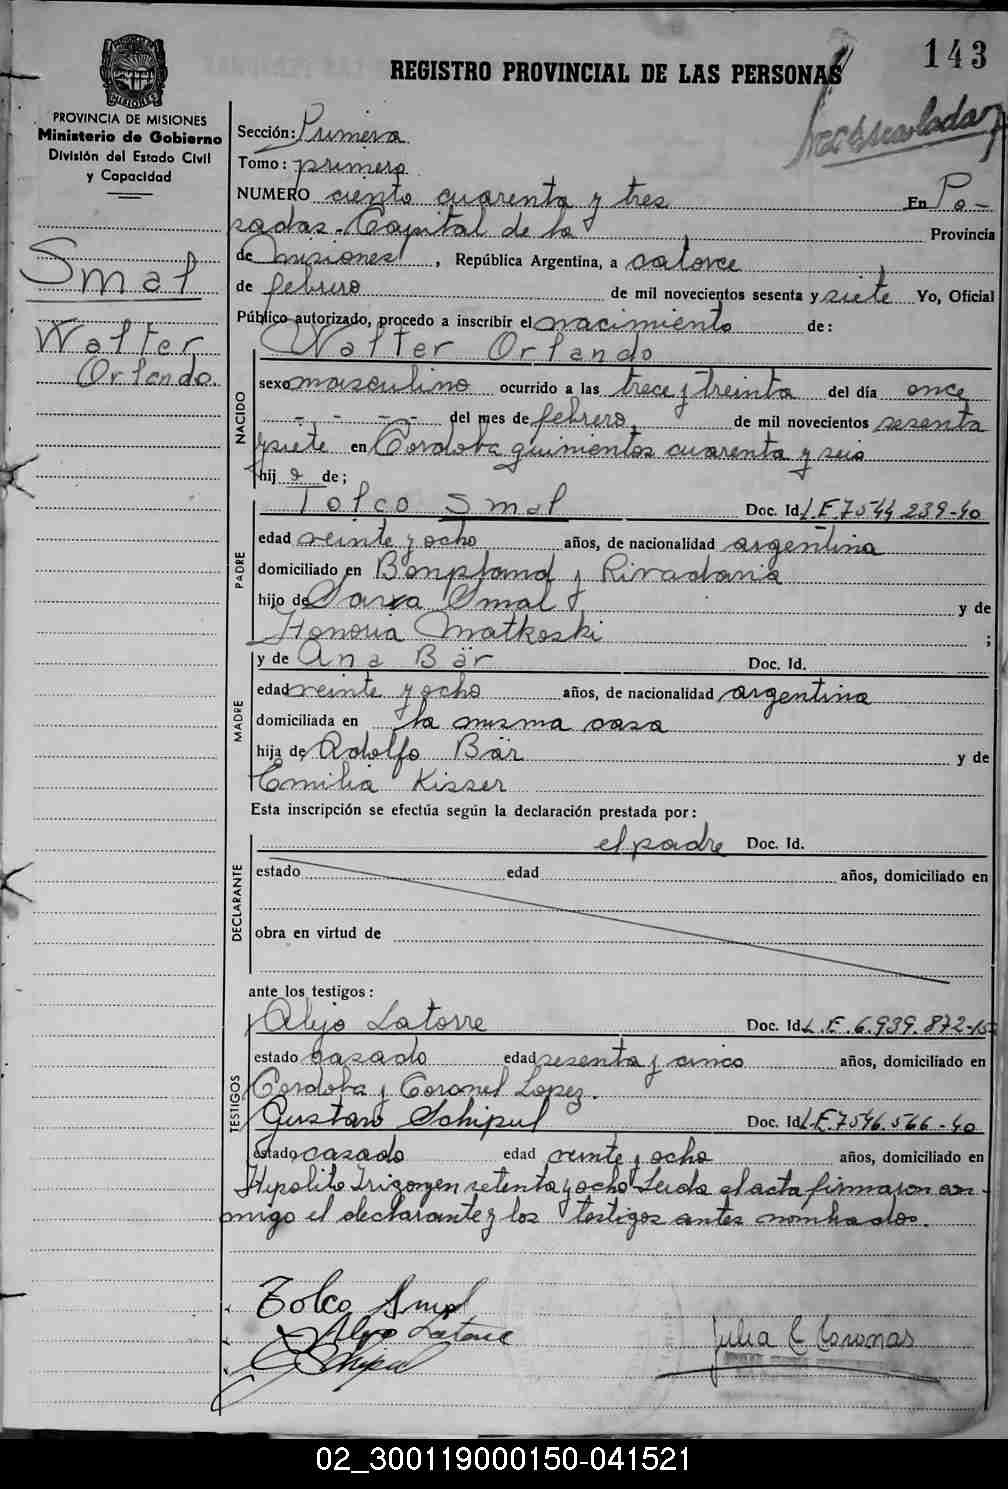 143
REGISTRO PROVINCIAL DE LAS PERSONAS
PROVINCIA DE MISIONES
Ministerio de Gobierno
División del Estado Civil
y Capacidad
Smal
Walter
Orlando.
Sección: Primera
Tomo: primero
NUMERO ciento cuarenta y tres En Po-
sadas. Capital de la Provincia
de Misiones, República Argentina, a catorce
de febrero de mil novecientos sesenta y siete Yo, Oficial
Público autorizado, procedo a inscribir el nacimiento de:
Walter Orlando
NACIDO
sexo masculino ocurrido a las trece y treinta del día once
del mes de febrero de mil novecientos sesenta
y siete en Cordoba quinientos cuarenta y seis
hijo de;
PADRE
Tolco Smal Doc. Id. L.E. 7544 239-40
edad veinte y ocho años, de nacionalidad argentina
domiciliado en Bonpland y Rivadavia
hijo de Smal y de
Honoria Matkoski ;
MADRE
y de Ana Bär Doc. Id.
edad veinte y ocho años, de nacionalidad argentina
domiciliada en la misma casa
hija de Adolfo Bär y de
Emilia Kisser
Esta inscripción se efectúa según la declaración prestada por:
DECLARANTE
el padre Doc. Id.
estado edad años, domiciliado en
obra en virtud de
ante los testigos:
TESTIGOS
Alejo Latorre Doc. Id. L.E. 6.939.872-15
estado casado edad sesenta y cinco años, domiciliado en
Cordoba y Coronel Lopez.
Gustavo Schipul Doc. Id. L.E. 7546.566-40
estado casado edad veinte y ocho años, domiciliado en
Hipolito Irigoyen setenta y ocho Leida el acta firmaron con-
migo el declarante y los testigos antes nombrados.
Tolco Smal
Alejo Latorre
Schipul
Julia C Coronas
02_300119000150-041521